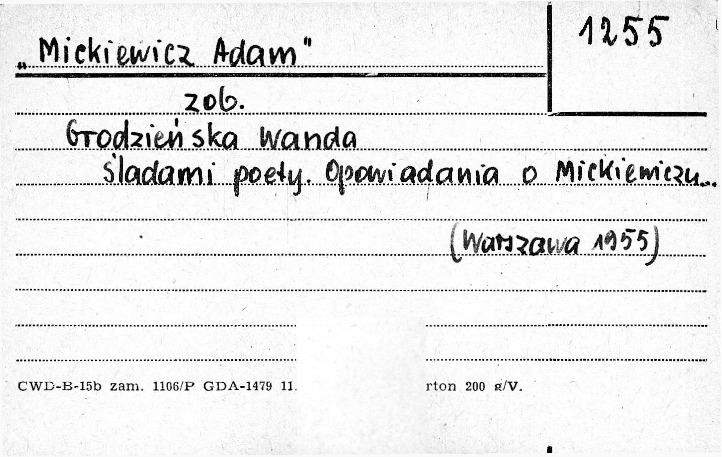 1255
„Mickiewicz Adam"
zob.
Grodzieńska Wanda
Śladami poety. Opowiadania o Mickiewiczu...
(Warszawa 1955)
CWD-B-15b zam. 1106/P GDA-1479 11. rton 200 g/V.